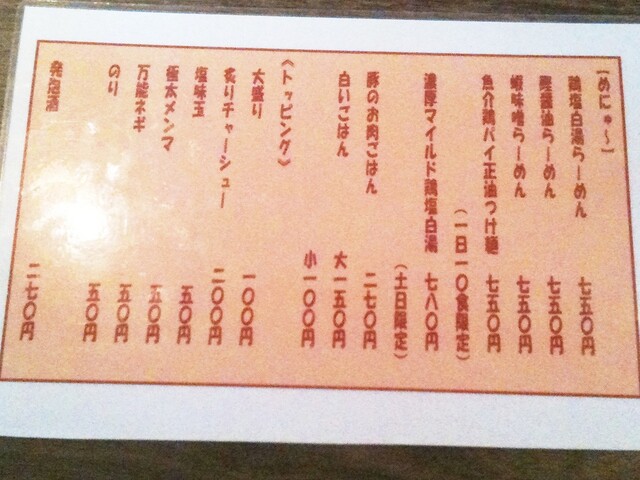 【めにゅ～】
鶏塩白湯らーめん 七五〇円
鰹醤油らーめん 七五〇円
蝦味噌らーめん 七五〇円
魚介鶏パイ正油つけ麺 七五〇円
（一日一〇食限定）
濃厚マイルド鶏塩白湯 七八〇円
（土日限定）
豚のお肉ごはん 二七〇円
白いごはん 大一五〇円
小一〇〇円
《トッピング》
大盛り 一〇〇円
炙りチャーシュー 二〇〇円
塩味玉 五〇円
極太メンマ 五〇円
万能ネギ 五〇円
のり 五〇円
発泡酒 二七〇円